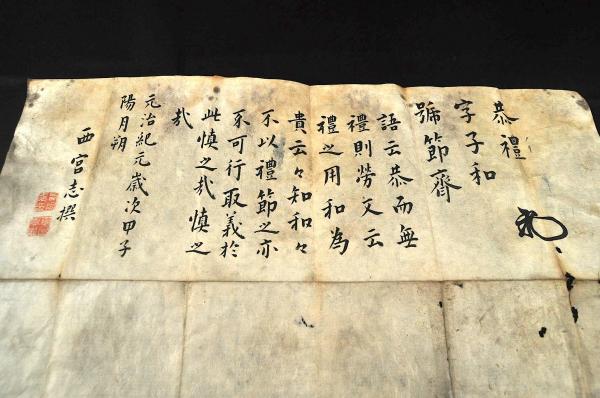 恭禮
字子和
號節齊
語云恭而無
禮則勞文云
禮之用和為
貴云々知和々
不以禮節之亦
不可行取義於
此慎之哉慎之
哉
元治紀元歲次甲子
陽月朔
西宮志撰